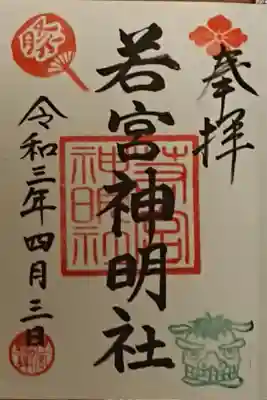 奉拝
若宮神明社
若宮
神明社
令和三年四月三日